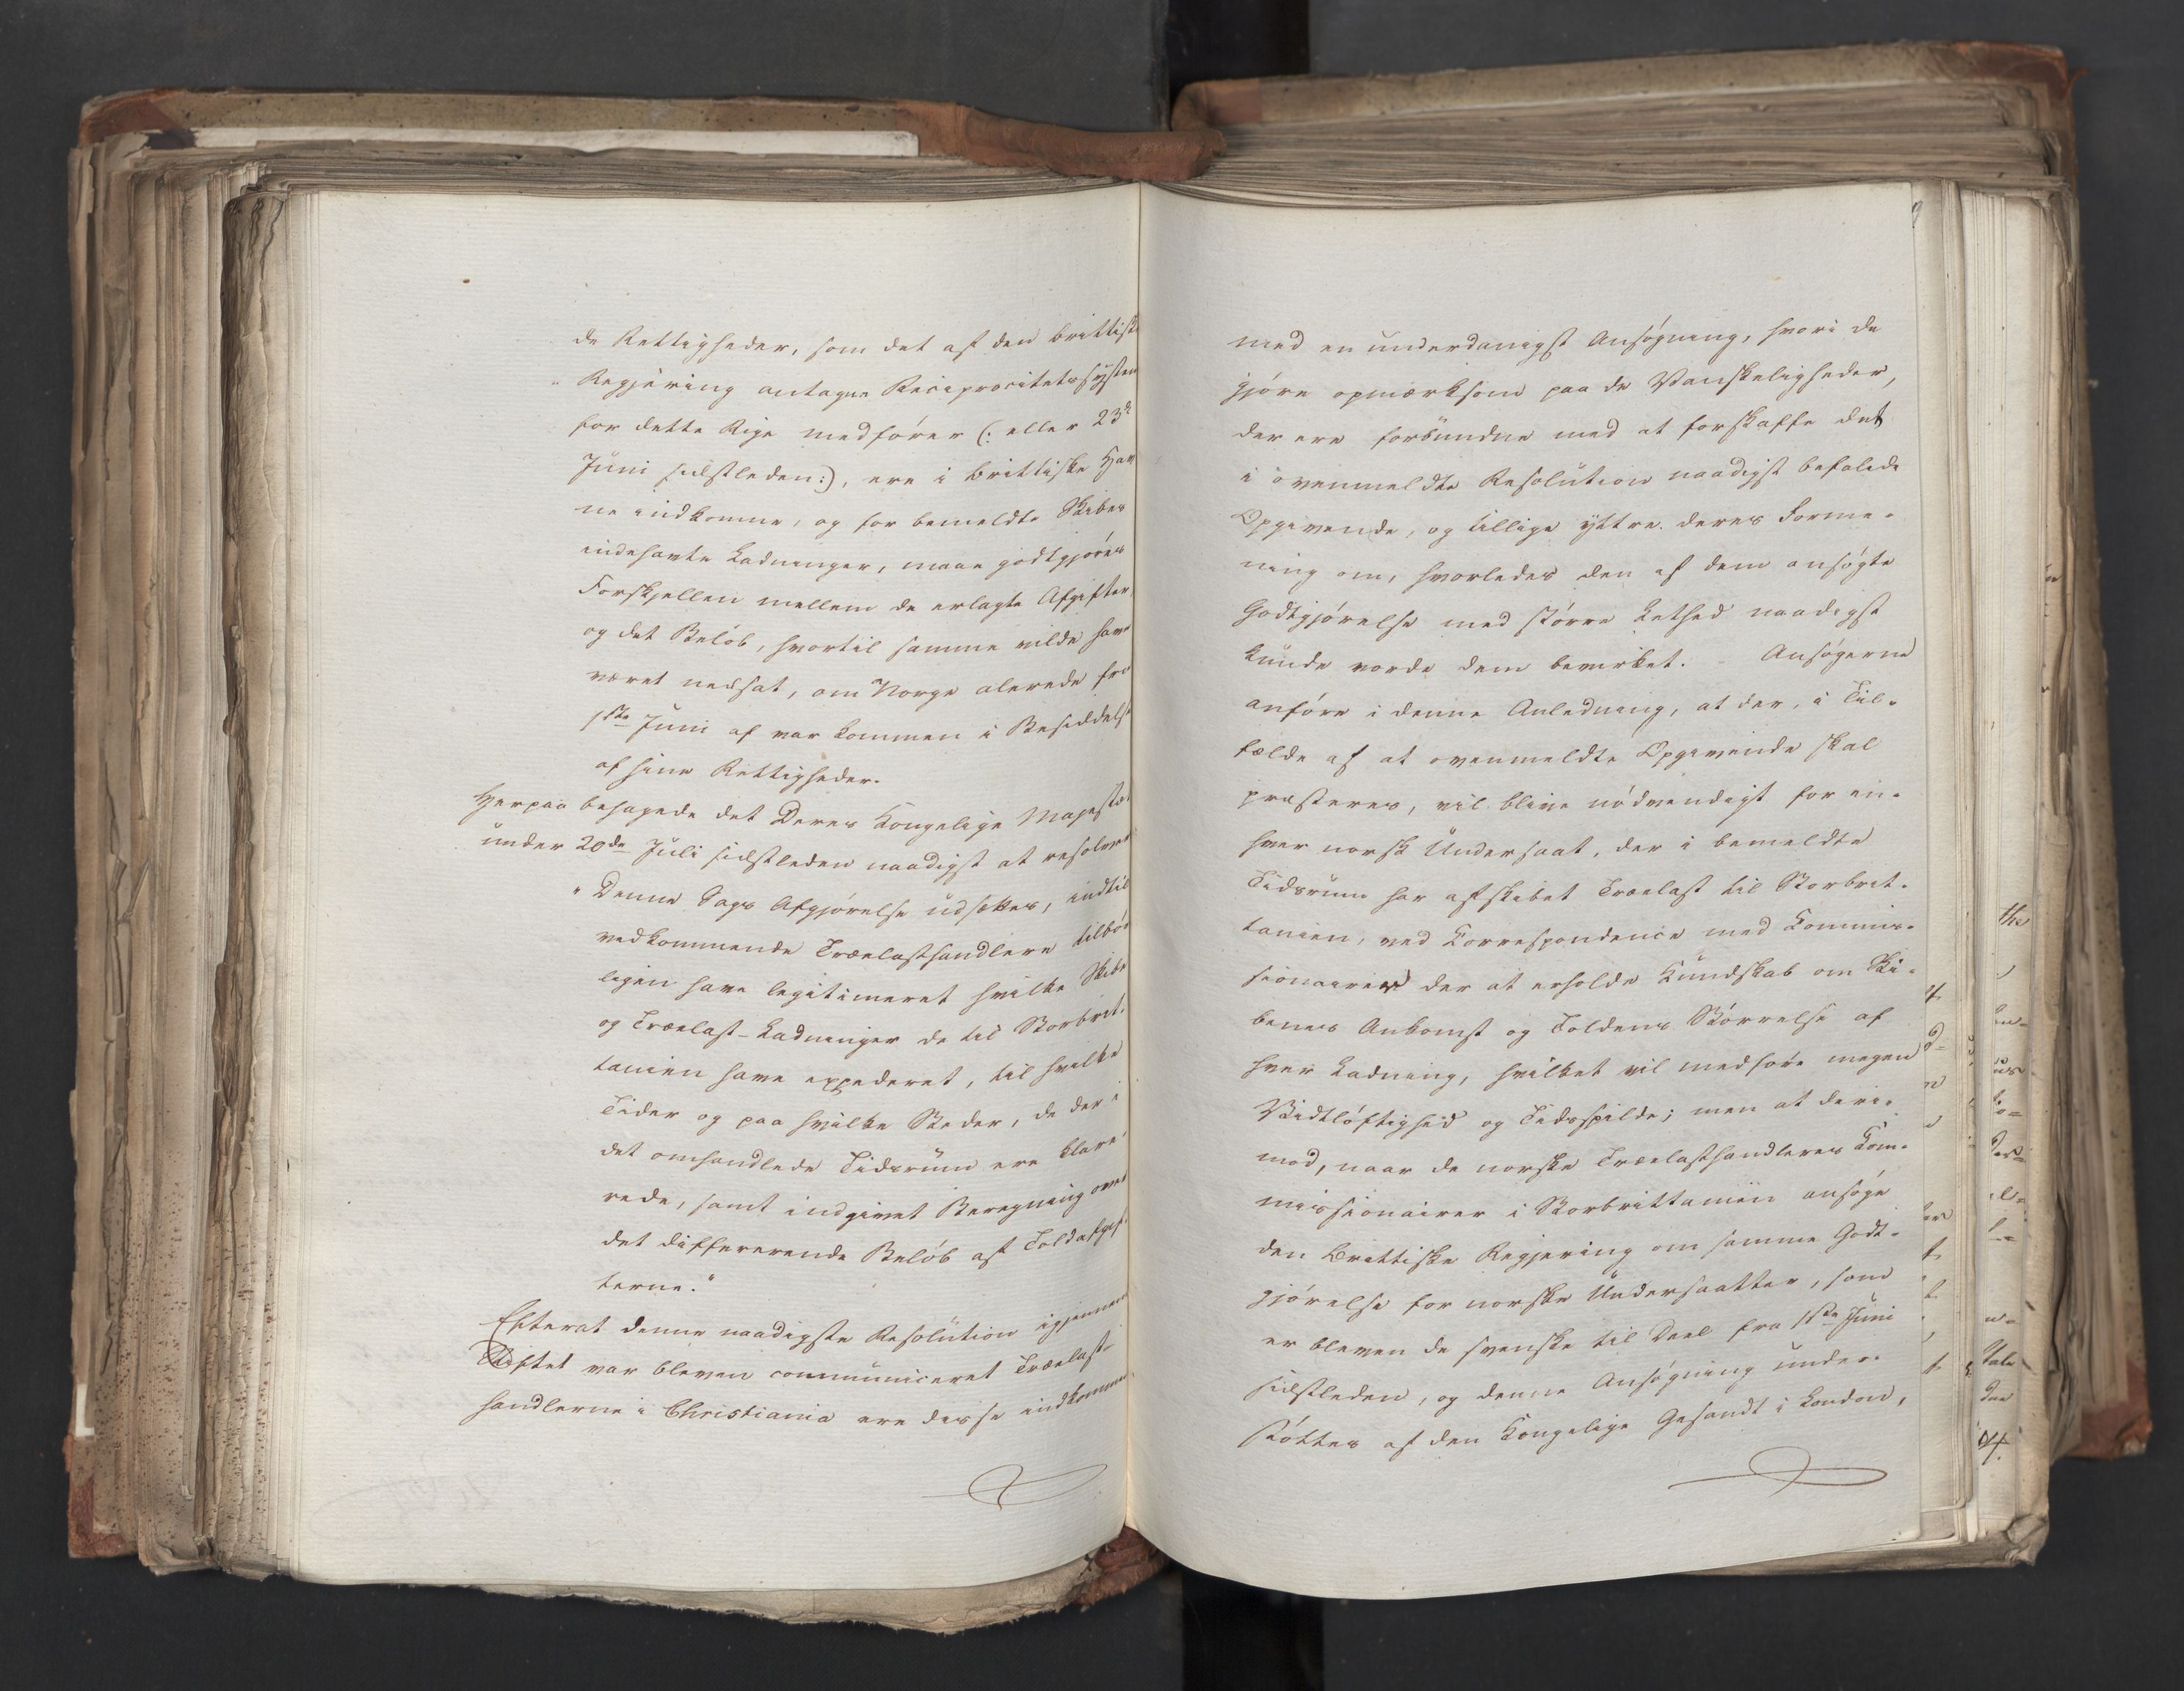 de Rettigheder, som det af den brittiske
Regjering antagne Reciprocitetssystem
for dette Rige medfører (: eller 23de
Juni sidstleden:), ere i brittiske Hav
ne indkomne, og for bemeldte Skibes
indehavte Ladninger, maae godtgjøres
Forskjellen mellem de erlagte Afgifter,
og det Beløb, hvortil samme vilde have
været nedsat, om Norge alerede fra
1ste Juni af var kommen i Besiddelse
af sine Rettigheder.
Herpaa behagede det Deres Kongelige Majestæt
under 20de Juli sidstleden naadigst at resolvere
"Denne Sags Afgjørelse udsættes, indtil
vedkommende Trælasthandlere tilbør
ligen have legitimeret hvilke Skibe
og Trælast-Ladninger de til Storbrit-
tanien have expederet, til hvilke
Tider og paa hvilke Steder, de der i
det omhandlede Tidsrum ere klare-
rede, samt indgivet Beregning over
det differerende Beløb af Toldafgif-
terne."
Efterat denne naadigste Resolution igjennem
Stiftet var bleven communiceret Trælast-
handlerne i Christiania ere disse indkomne
med en underdanigst Ansøgning, hvori de
gjøre opmærksom paa de Vanskeligheder,
der ere forbundne med at forskaffe det
i ovenmeldte Resolution naadigst befalede
Opgivende, og tillige yttre deres Forme-
ning om, hvorledes den af dem ansøgte
Godtgjørelse med større Lethed naadigst
kunde vorde dem bevirket. - Ansøgerne
anføre i denne Anledning, at der, i Til-
fælde af at ovenmeldte Opgivende skal
præsteres, vil blive nødvendigt for en-
hver norsk Undersaat, der i bemeldte
Tidsrum har afskibet Trælast til Storbrit-
tanien, ved Correspondence med Commis-
sionairer der at erholde Kundskab om Ski-
benes Ankomst og Toldens Størrelse af
hver Ladning, hvilket vil medføre megen
Vidtløftighed og Tidsspilde; men at deri-
mod, naar de norske Trælasthandleres Com-
missionairer i Storbrittanien ansøge
den Brittiske Regjering om samme Godt-
gjørelse for norske Undersaatter, som
er bleven de svenske til Deel fra 1ste Juni
sidstleden, og denne Ansøgning under-
støttes af den Kongelige Gesandt i London,